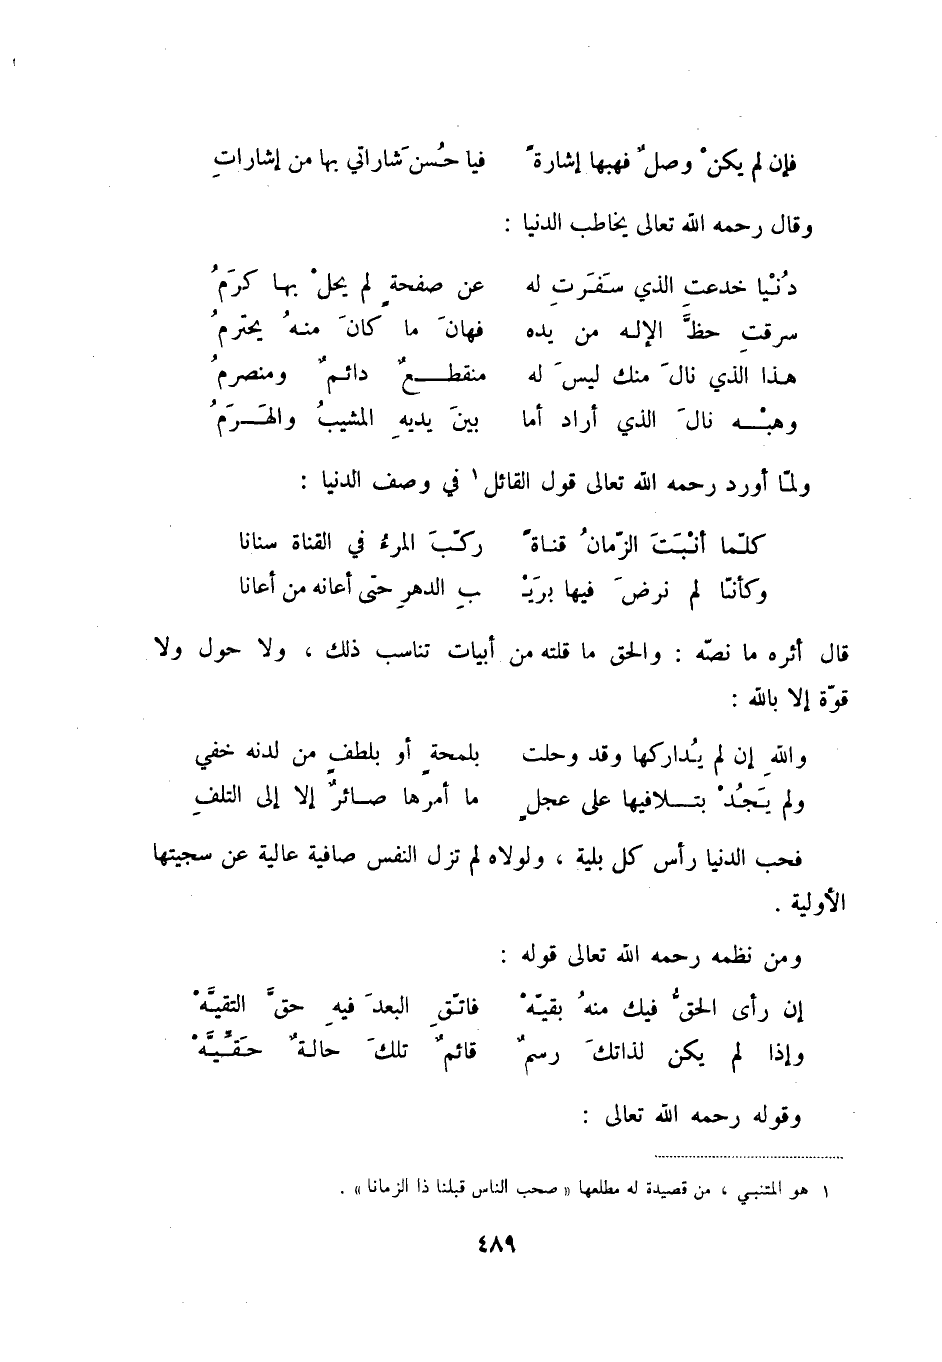 فإن لم يكنْ وصلٌ فهبها إشارةً فيا حُسن َشاراتي بها من إشاراتِ
وقال رحمه الله تعالى يخاطب الدنيا :
دُنْيا خدعتِ الذي سفَرَتِ له عن صفحةٍ لم يحلْ بها كرَمُ
سرقتِ حظَّ الإله من يده فهانَ ما كانَ منهُ يحترمُ
هذا الذي نالَ منك ليسَ له منقطعٌ دائمٌ ومنصرمُ
وهبْه نالَ الذي أراد أما بينَ يديهِ المشيبُ والهَرَمُ
ولمّا أورد رحمه الله تعالى قول القائل١ في وصف الدنيا :
كلّما أنْبَتَ الزّمانُ قناةً ركّبَ المرءُ في القناة سنانا
وكأنّا لم نرضَ فيها بريَبْ بِ الدهرِ حتّى أعانه من أعانا
قال أثره ما نصّه : والحق ما قلته من أبيات تناسب ذلك ، ولا حول ولا
قوّة إلا بالله :
واللهِ إن لم يُداركها وقد وحلت بلمحةٍ أو بلطفٍ من لدنه خفي
ولم يَجُدْ بتلافيها على عجلٍ ما أمرها صائرٌ إلا إلى التلفِ
فحب الدنيا رأس كل بلية ، ولولاه لم تزل النفس صافية عالية عن سجيتها
الأولية .
ومن نظمه رحمه الله تعالى قوله :
إن رأى الحقُّ فيك منهُ بقيّهْ فاتّقِ البعدَ فيهِ حقَّ التقيَّهْ
وإذا لم يكن لذاتكَ رسمٌ قائمٌ تلكَ حالةٌ حَقِّيَّهْ
وقوله رحمه الله تعالى :
١ هو المتنبي ، من قصيدة له مطلعها « صحب الناس قبلنا ذا الزمانا » .
٤٨٩